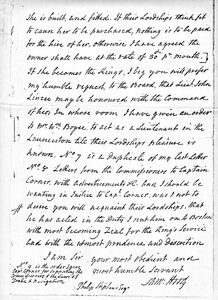 she is built, and fitted. If their Lordships think fit
to cause her to be purchased, nothing is to be paid
for the hire of her, otherwise I have agreed the
owner shall have at the rate of 30£ pr month. If
she becomes the Kings, I beg you will prefer
my humble request to the Board, that Lieut. John
Linzee may be honoured with the command
of her. In whose room I have given an order
to Mr Wm Boyce, to act as a Lieutenant in the
Launceston till their Lordships Pleasure is
known. No 7 is a Duplicate of my last Letter
No 8 Letters from the Commissioners to Captain
Corner, with advertisements &c. and I should be
wanting in Justice to Capt. Corner, was I not to
desire you will acquaint their Lordships, that
he has acted in the Duty I sent him on to Boston
with most becoming Zeal for the King's Service
and with the utmost prudence, and Discretion.
I am Sir your most obedient and
most humble Servant
No 9 is the order given
Capt. Corner for supporting the
Commissioners & the Laws of
Trade & Navigation
Saml Hood
Philip Stephens Esqr